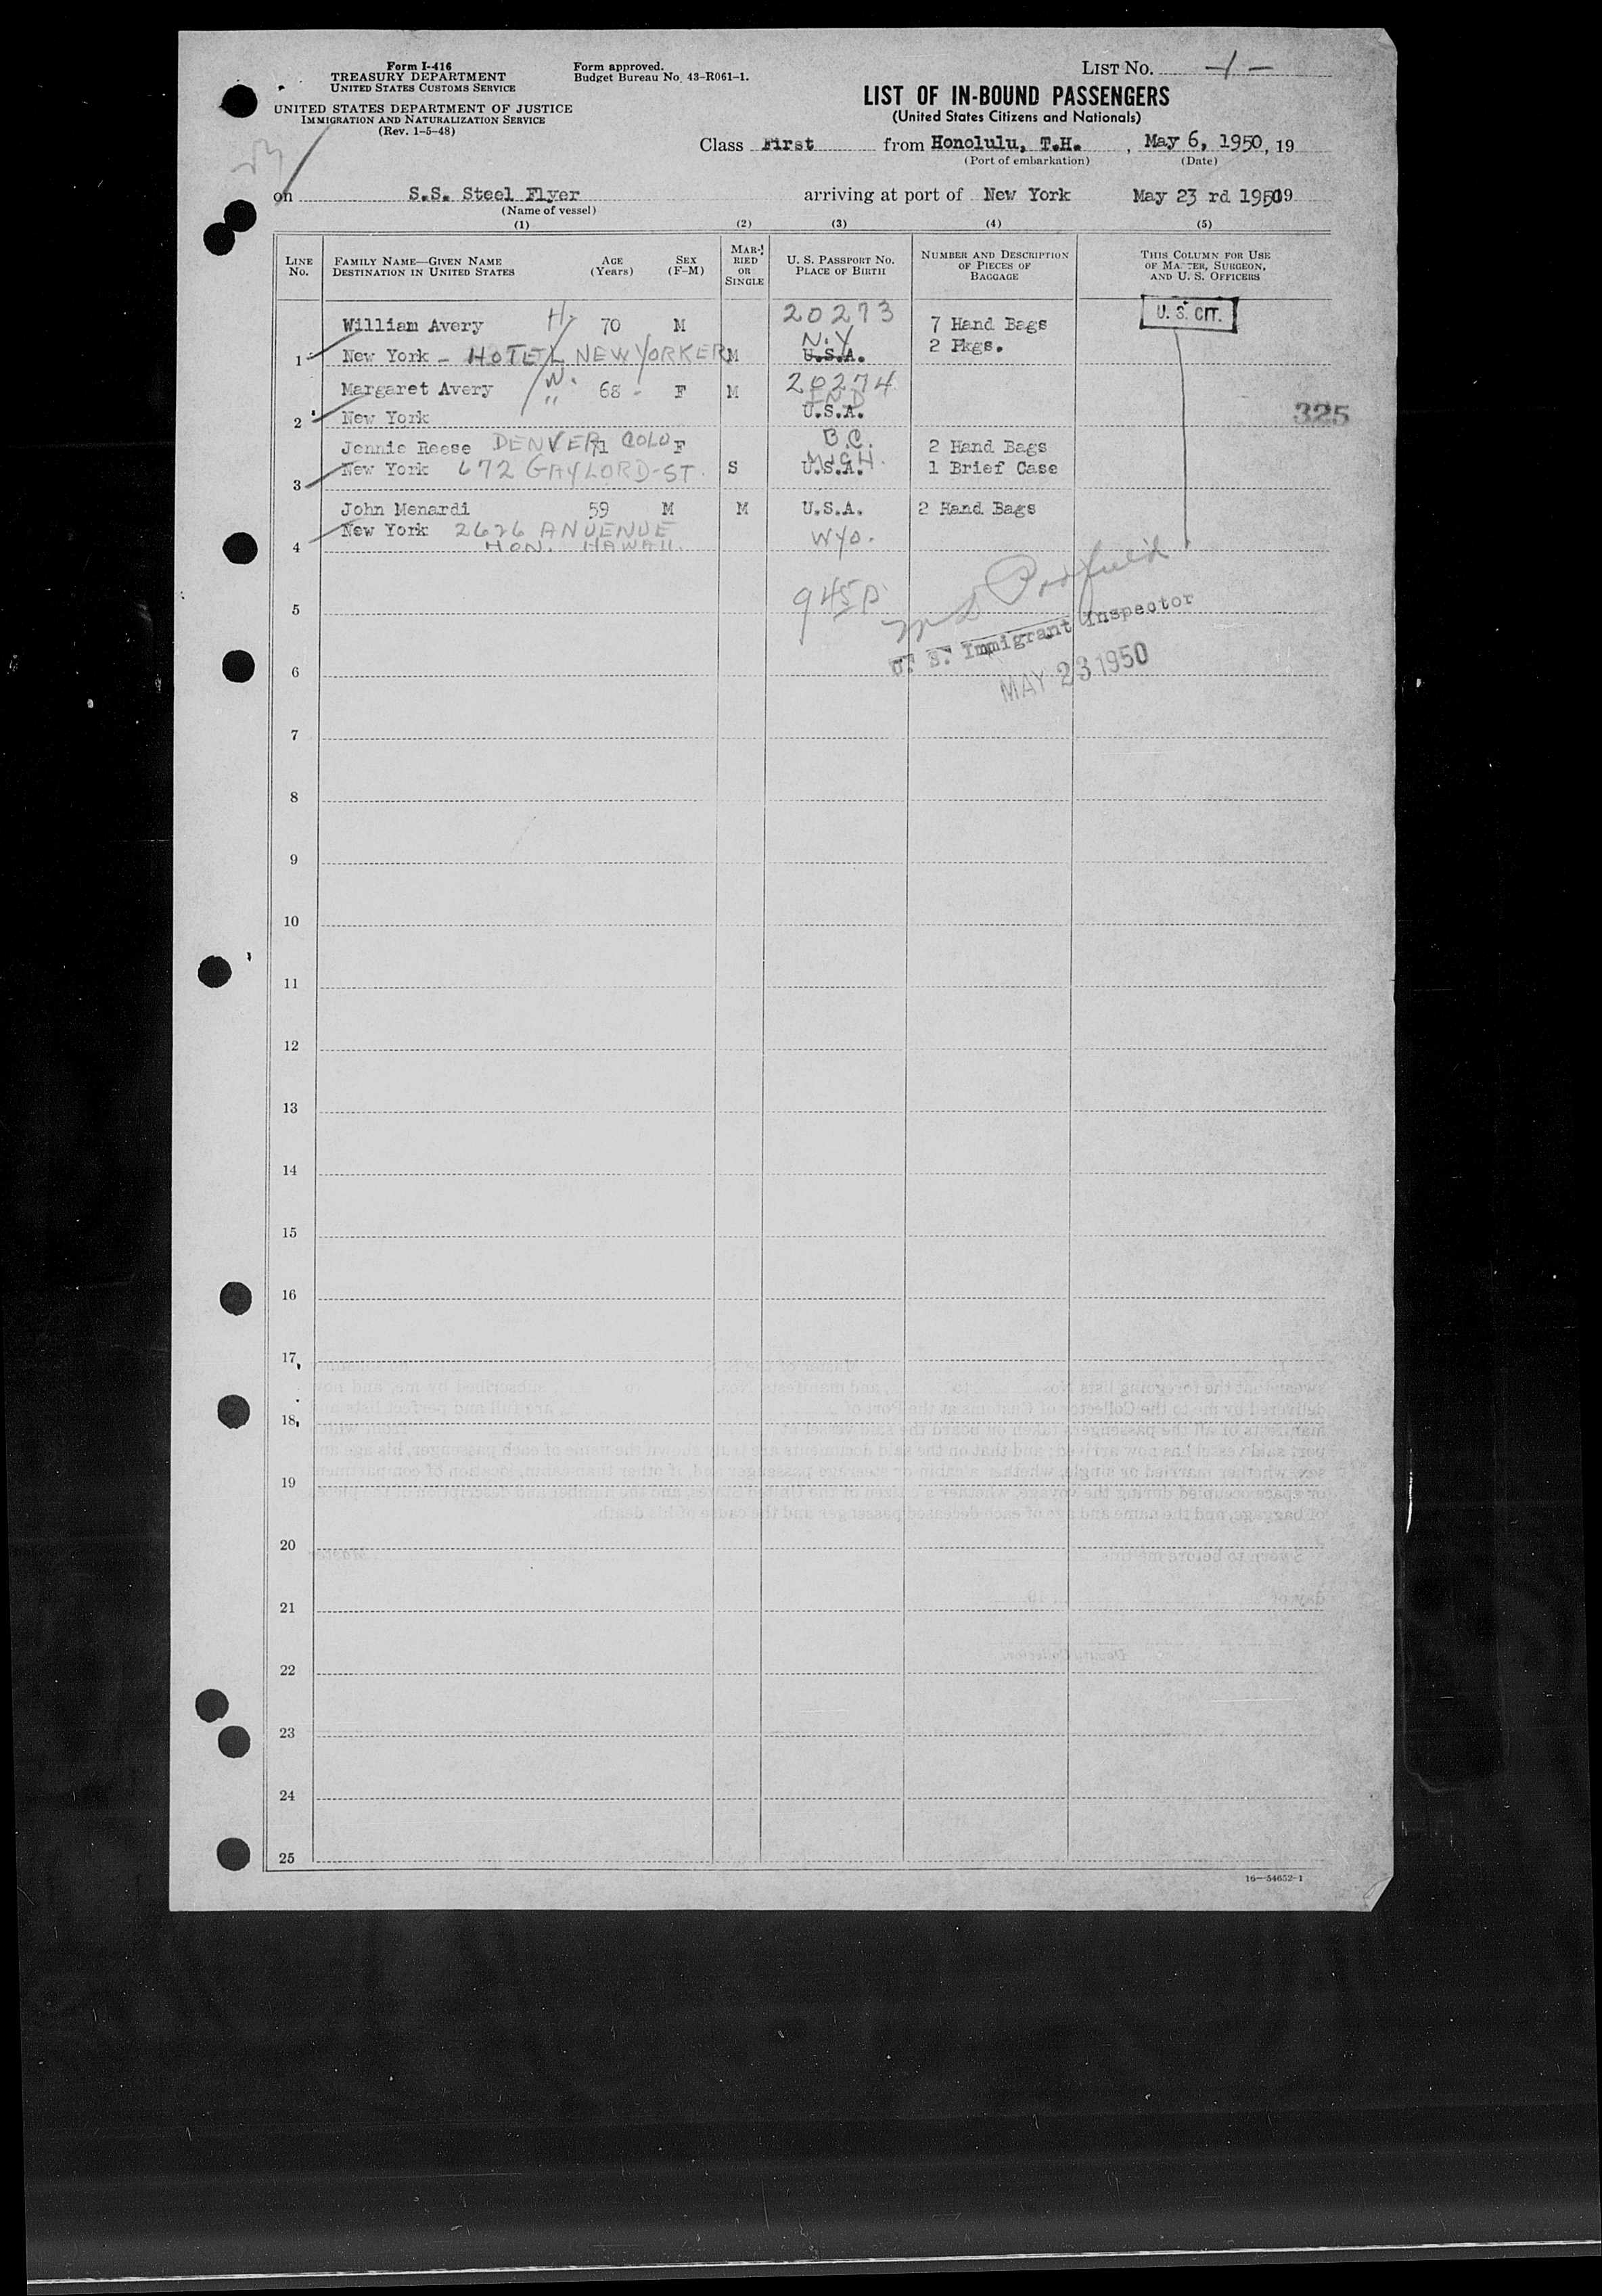 Form I-416
TREASURY DEPARTMENT
UNITED STATES CUSTOMS SERVICE
UNITED STATES DEPARTMENT OF JUSTICE
IMMIGRATION AND NATURALIZATION SERVICE
(Rev. 1-5-48)
Form approved.
Budget Bureau No. 43-R061-1.
LIST NO. -1-
LIST OF IN-BOUND PASSENGERS
(United States Citizens and Nationals)
Class First from Honolulu, T.H., May 6, 1950, 19
(Port of embarkation) (Date)
on S.S. Steel Flyer arriving at port of New York May 23 rd 195019
(Name of vessel)
(1) (2) (3) (4) (5)
LINE No. FAMILY NAME—GIVEN NAME DESTINATION IN UNITED STATES AGE (Years) SEX (F-M) MARRIED OR SINGLE U. S. PASSPORT NO. PLACE OF BIRTH NUMBER AND DESCRIPTION OF PIECES OF BAGGAGE THIS COLUMN FOR USE OF MASTER, SURGEON, AND U. S. OFFICERS
20273 U. S. CIT.
William Avery H. 70 M N.Y 7 Hand Bags
1 New York - HOTEL NEW YORKER M U.S.A. 2 Pkgs.
Margaret Avery W. 68 F M 20274
IND
2 New York " U.S.A. 325
Jennie Reese DENVER COLO 71 F B.C. 2 Hand Bags
MICH.
3 New York 672 GAYLORD-ST. S U.S.A. 1 Brief Case
John Menardi 59 M M U.S.A. 2 Hand Bags
New York 2626 ANUENUE
4 HON. HAWAII. Wyo.
5 945P
U. S. Immigrant Inspector
6 MAY 23 1950
7
8
9
10
11
12
13
14
15
16
17
18
19
20
21
22
23
24
25
16—54652-1